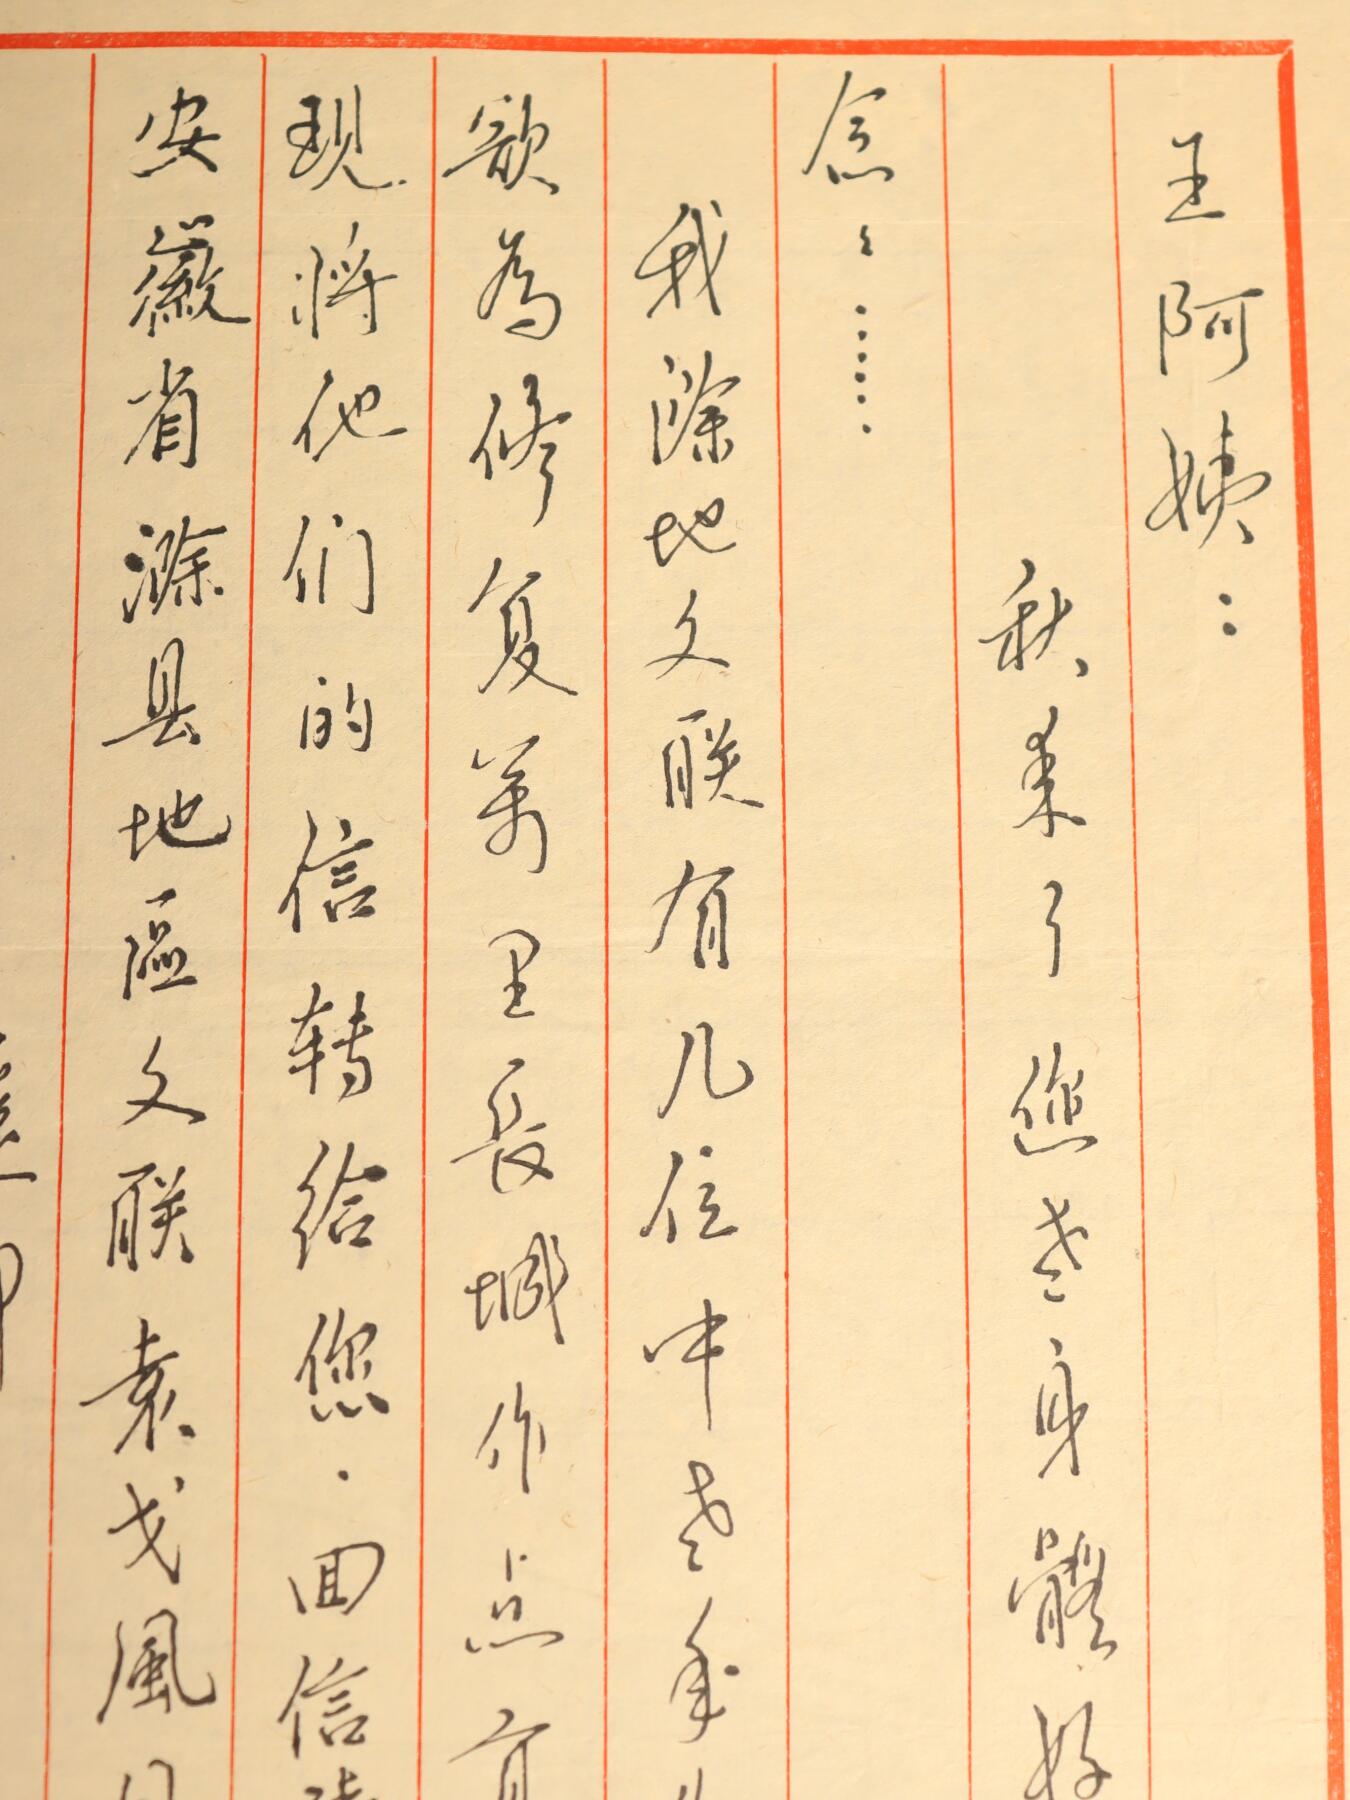 王阿姨：
秋来了您老身體好
念々……
我滁地文联有几位中老年
欲為修复萬里長城作点貢
现将他们的信转给您.回信
安徽省滁县地區文联袁戈風